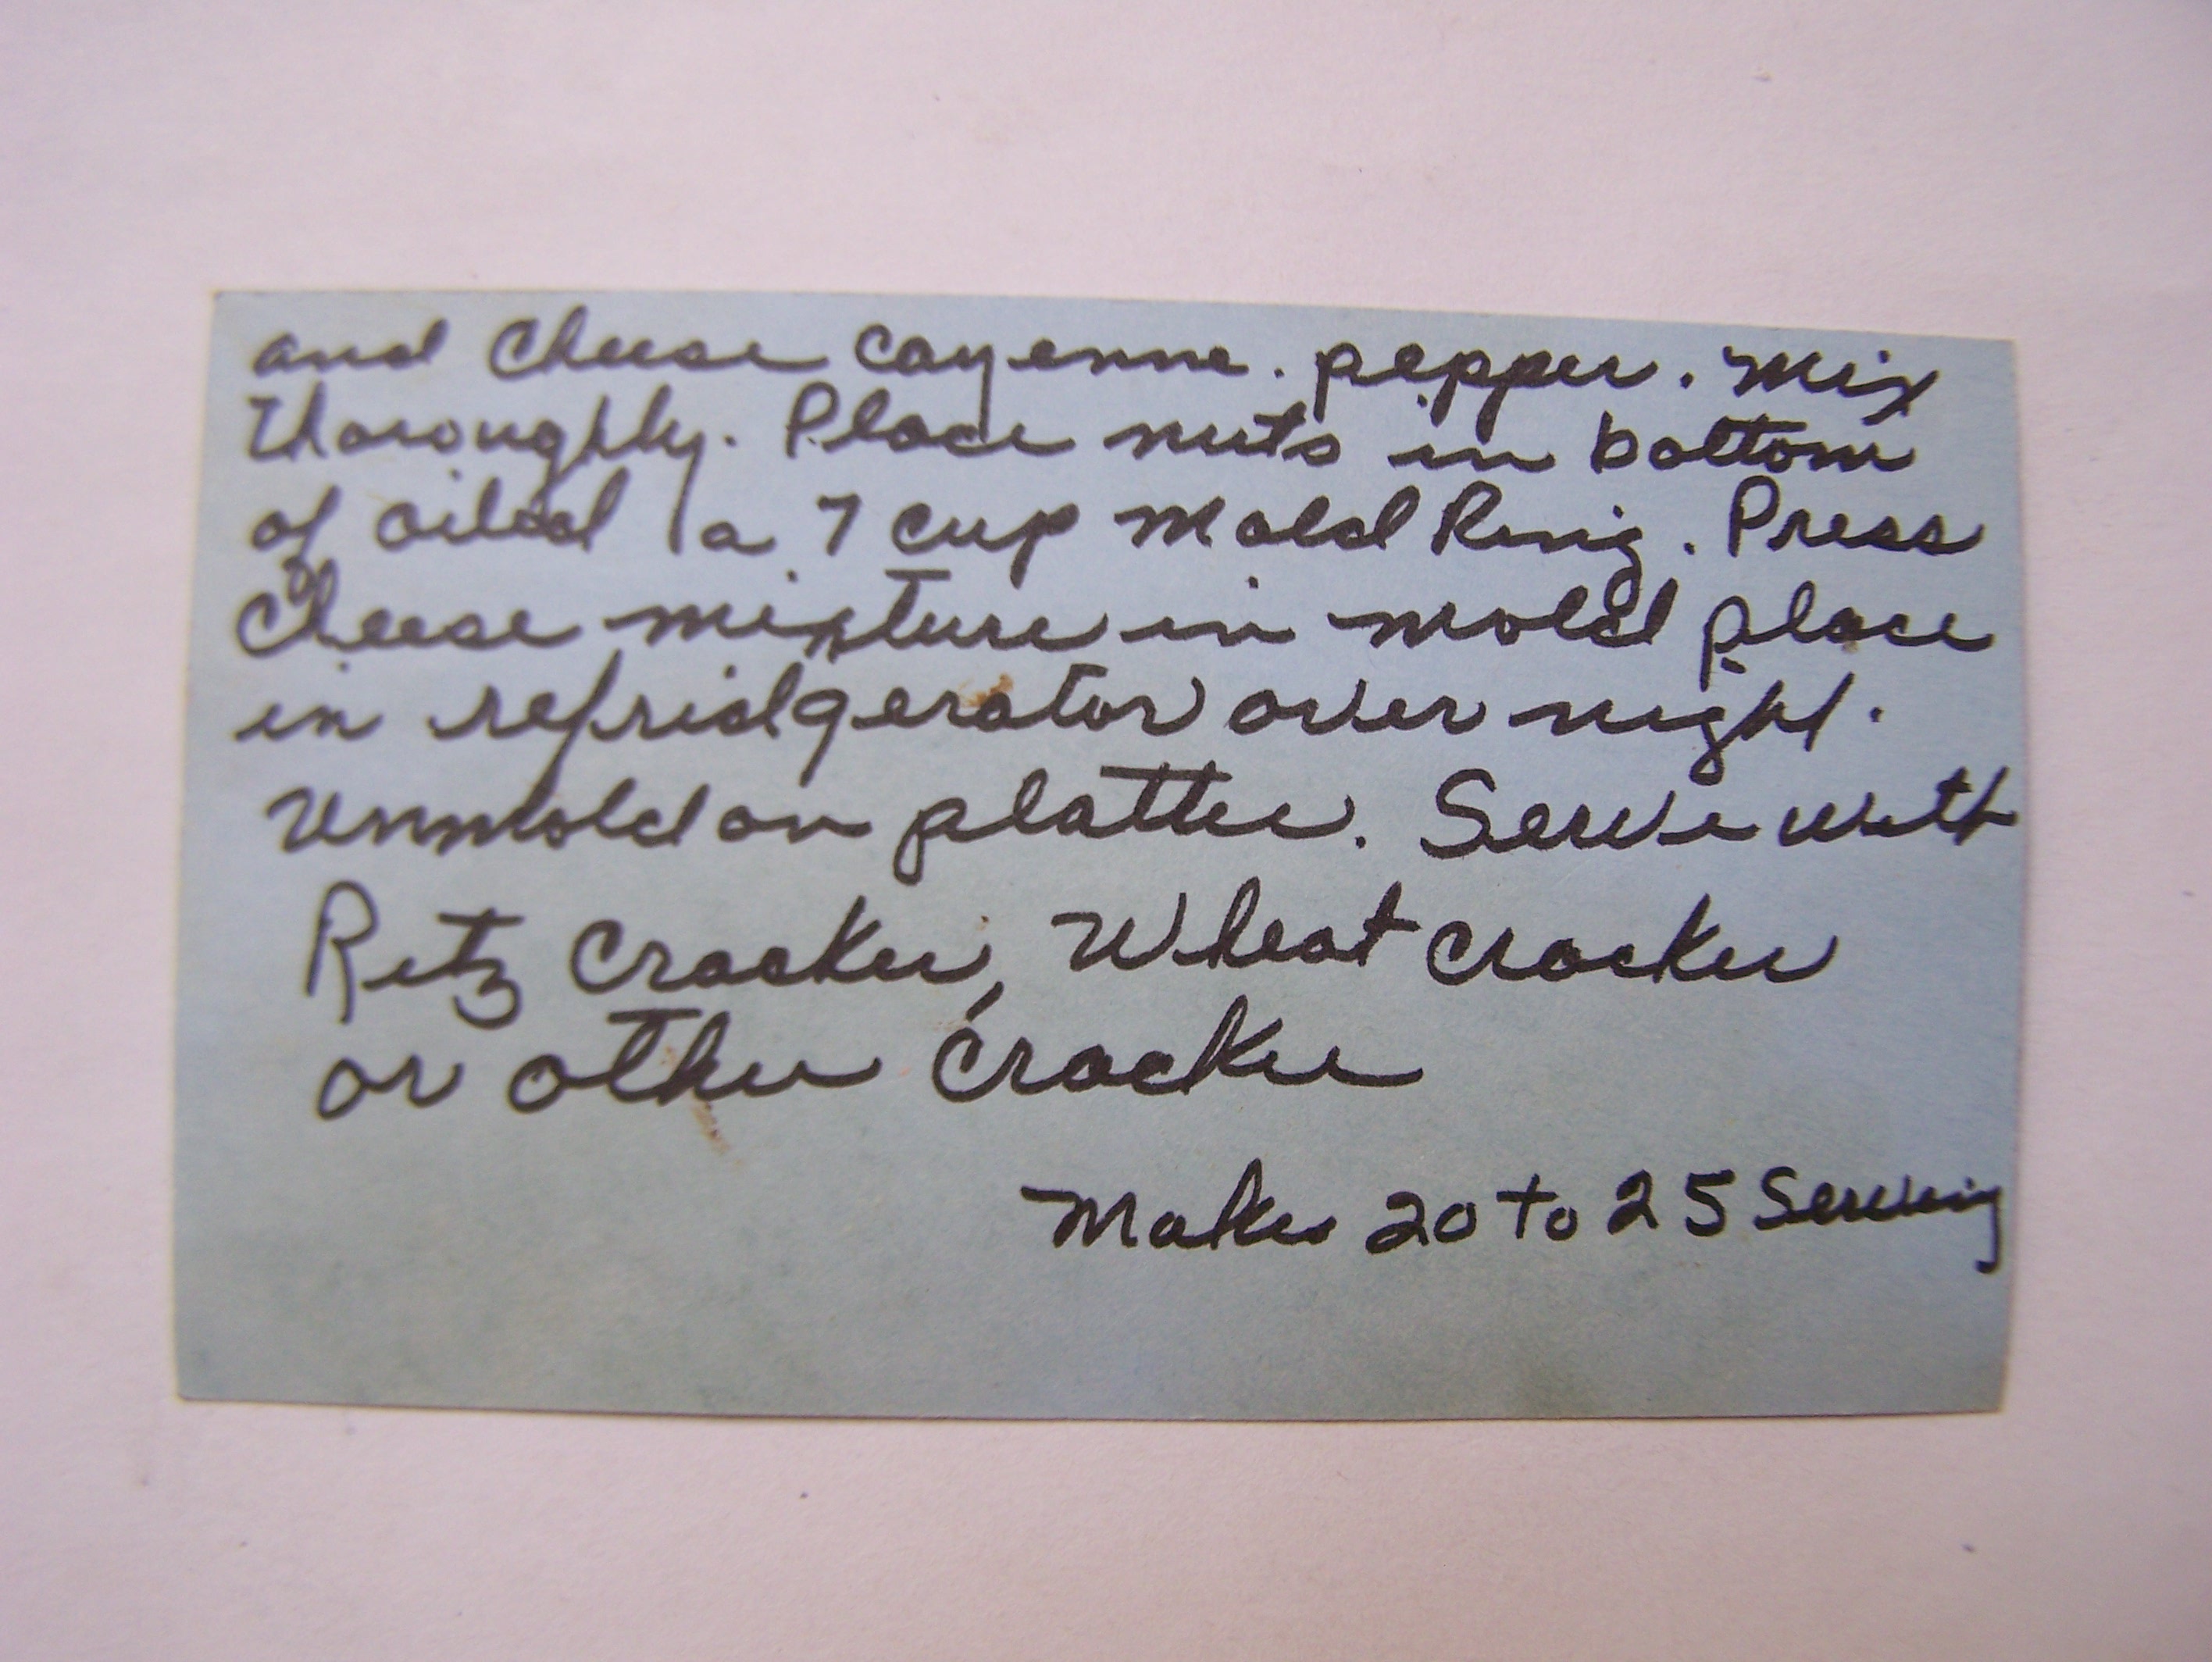 and Cheese cayenne. pepper. Mix
thoroughly. Place nuts in bottom
of oiled a 7 cup Mold Ring. Press
Cheese mixture in mold place
in refridgerator over night.
Unmold on platter. Serve with
Ritz Cracker, Wheat Cracker
or other cracker
Makes 20 to 25 Serving